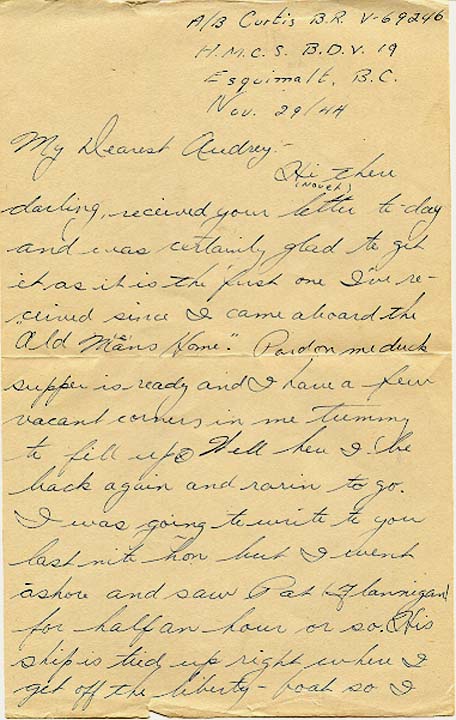 A/B Curtis B.R. V-69246
H.M.C.S. B.D.V. 19
Esquimalt, B.C.
Nov. 29/44
My Dearest Audrey:-
Hi ther
(Novet)
darling, received your letter to-day
and was certainly glad to get
it as it is the first one I've re-
ceived since I came aboard the
"Old Man's Home". Pardon me duck
supper is ready and I have a few
vacant corners in me tummy
to fill up. Well here I be
back again and rarin to go.
I was going to write to you
last nite hon but I went
ashore and saw Pat (Flannigan)
for half an hour or so. (His
ship is tied up right where I
get off the liberty-boat so I